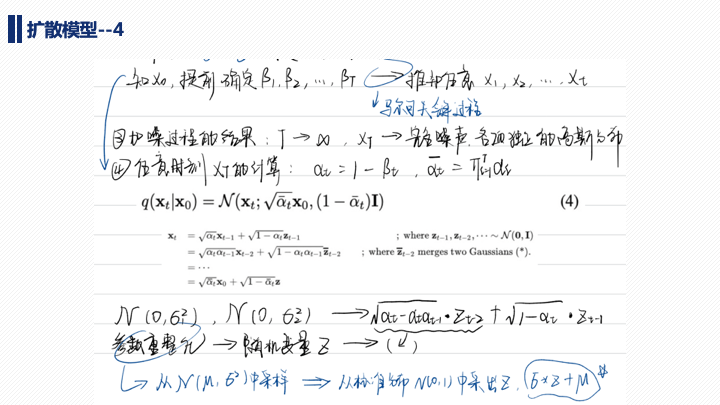 扩散模型--4
知x₀, 提前确定 β₁, β₂, …, β_T → 推导任意 x₁, x₂, …, x_t
马尔可夫链过程
③ 加噪过程的结果: T → ∞, x_T → 完全噪声, 各项独立的高斯分布
④ 任意时刻 x_T 的计算: α_t = 1 − β_t, ᾱ_t = ∏ᵀᵢ₌₁ αᵢ
q(x_t|x_0) = N(x_t; √ᾱ_t x_0, (1 − ᾱ_t)I) (4)
x_t = √α_t x_{t−1} + √1 − α_t z_{t−1} ; where z_{t−1}, z_{t−2}, ⋯ ∼ N(0, I)
= √α_t α_{t−1} x_{t−2} + √1 − α_t α_{t−1} z̄_{t−2} ; where z̄_{t−2} merges two Gaussians (*).
= ⋯
= √ᾱ_t x_0 + √1 − ᾱ_t z
N(0, σ₁²), N(0, σ₂²) → √α_t − α_t α_{t−1} · z_{t−2} + √1 − α_t · z_{t−1}
参数重整化 → 随机变量 z → (↙)
↳ 从 N(μ, σ²) 中采样 ⇒ 从标准分布 N(0,1) 中采出 z, σ×z+μ